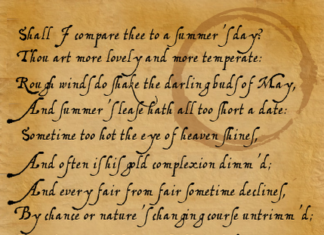 Shall I compare thee to a summer's day?
Thou art more lovely and more temperate:
Rough winds do shake the darling buds of May,
And summer's lease hath all too short a date:
Sometime too hot the eye of heaven shines,
And often is his gold complexion dimm'd;
And every fair from fair sometime declines,
By chance or nature's changing course untrimm'd;